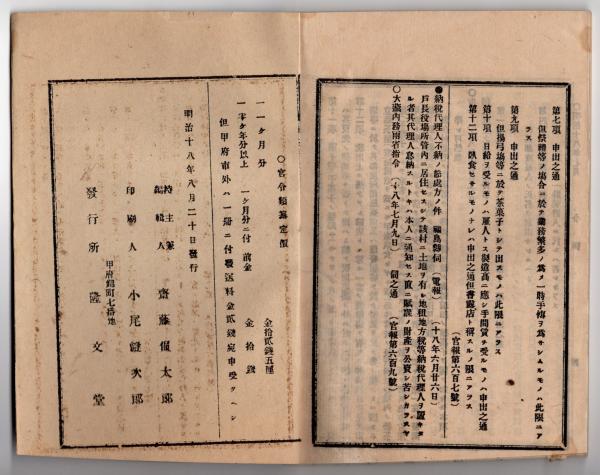 第七項 申出之通
但祭禮等ノ場合ニ於テ業務繁多ノ爲メ一時手傳ヲ爲サシムルモノハ此限ニア
ラス
第九項 申出之通
但揚弓場等ニ於テ茶菓子トシテ出スモノハ此限ニアラス
第十項 日給ヲ受ルモノハ雇人トス製造高ニ應シ手間賃ヲ受ルモノハ申出之通
第十二項 飲食セサルモノナレハ申出之通但書露店ト稱スルノ限ニアラス
(官報第六百七號)
●納税代理人不納ノ節處方ノ件 福島縣伺 (電報) (十八年六月廿六日)
戸長役場所管内ニ居住セスシテ該村ニ土地ヲ有シ地租地方税等納税代理人ヲ置キタ
ル者其代理人怠納スルトキハ本人ニ通知セス直ニ賦課ノ財産ヲ公賣シ苦シカラスヤ
○大藏内務兩省指令 (十八年七月九日) 伺之通 (官報第六百九號)
○官令類纂定價
一 一ケ月分 金拾貳錢五厘
一 零ケ年分以上 一ケ月分ニ付 前金 金拾錢
但甲府市外ハ一冊ニ付發送料金貳錢宛申受クヘシ
明治十八年八月二十日發行
持主兼
編輯人 齋藤 太郎
印刷人 小尾 次郎
甲府錦町七番地
發行所 文堂